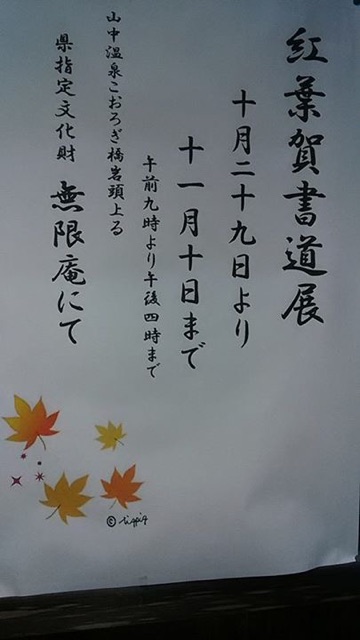 紅葉賀書道展
十月二十九日より
十一月十日まで
午前九時より午後四時まで
山中温泉こおろぎ橋岩頭上る
県指定文化財 無限庵にて
©